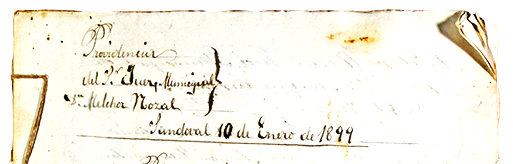 Providencia
del Sr. Juez Municipal
Dn. Melchor Nozal
Sandoval 10 de Enero de 1899